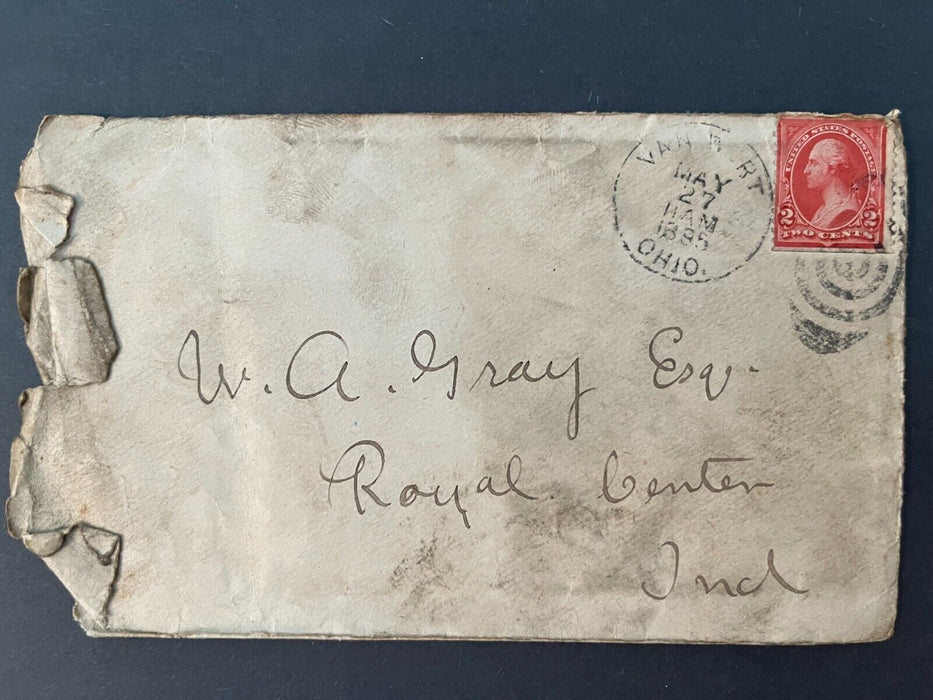 VAN W RT
MAY
27
11AM
1895
OHIO.
UNITED STATES POSTAGE
2 2
TWO CENTS
W. A. Gray Esq.
Royal. Center
Ind